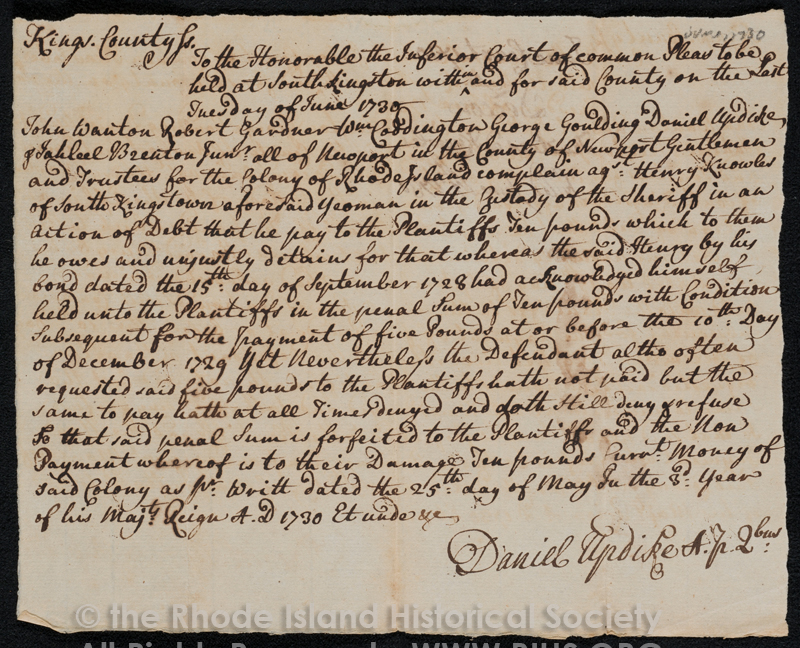 June, 1730
Kings. County Ss.
To the Honorable the Inferior Court of common Pleas to be
held at South Kingston within and for said County on the Last
Tuesday of June 1730
John Wanton Robert Gardner Wm Coddington George Goulding Daniel Updike
& Jahleel Brenton Junr. all of Newport in the County of Newport Gentlemen
and Trustees for the Colony of Rhode Island complain agt. Henry Knowles
of South Kingstown aforesaid Yeoman in the Custody of the Sheriff in an
Action of Debt that he pay to the Plantiffs Ten pounds which to them
he owes and unjustly detains for that whereas the said Henry by his
bond dated the 15th. day of September 1728 had acknowledged himself
held unto the Plantiffs in the penal Sum of Ten pounds with Condition
Subsequent for the payment of five Pounds at or before the 10th. Day
of December 1729 Yet Nevertheless the Defendant altho often
requested said five pounds to the Plantiffs hath not paid but the
same to pay hath at all Times denyed and doth Still deny & refuse
So that said penal Sum is forfeited to the Plantiffs and the Non
Payment whereof is to their Damage Ten pounds Currt. Money of
said Colony as pr. Writt dated the 25th. day of May In the 3d. Year
of his Majts. Reign A. D 1730 Et unde &c
Daniel Updike A. p. Qbus.
© the Rhode Island Historical Society